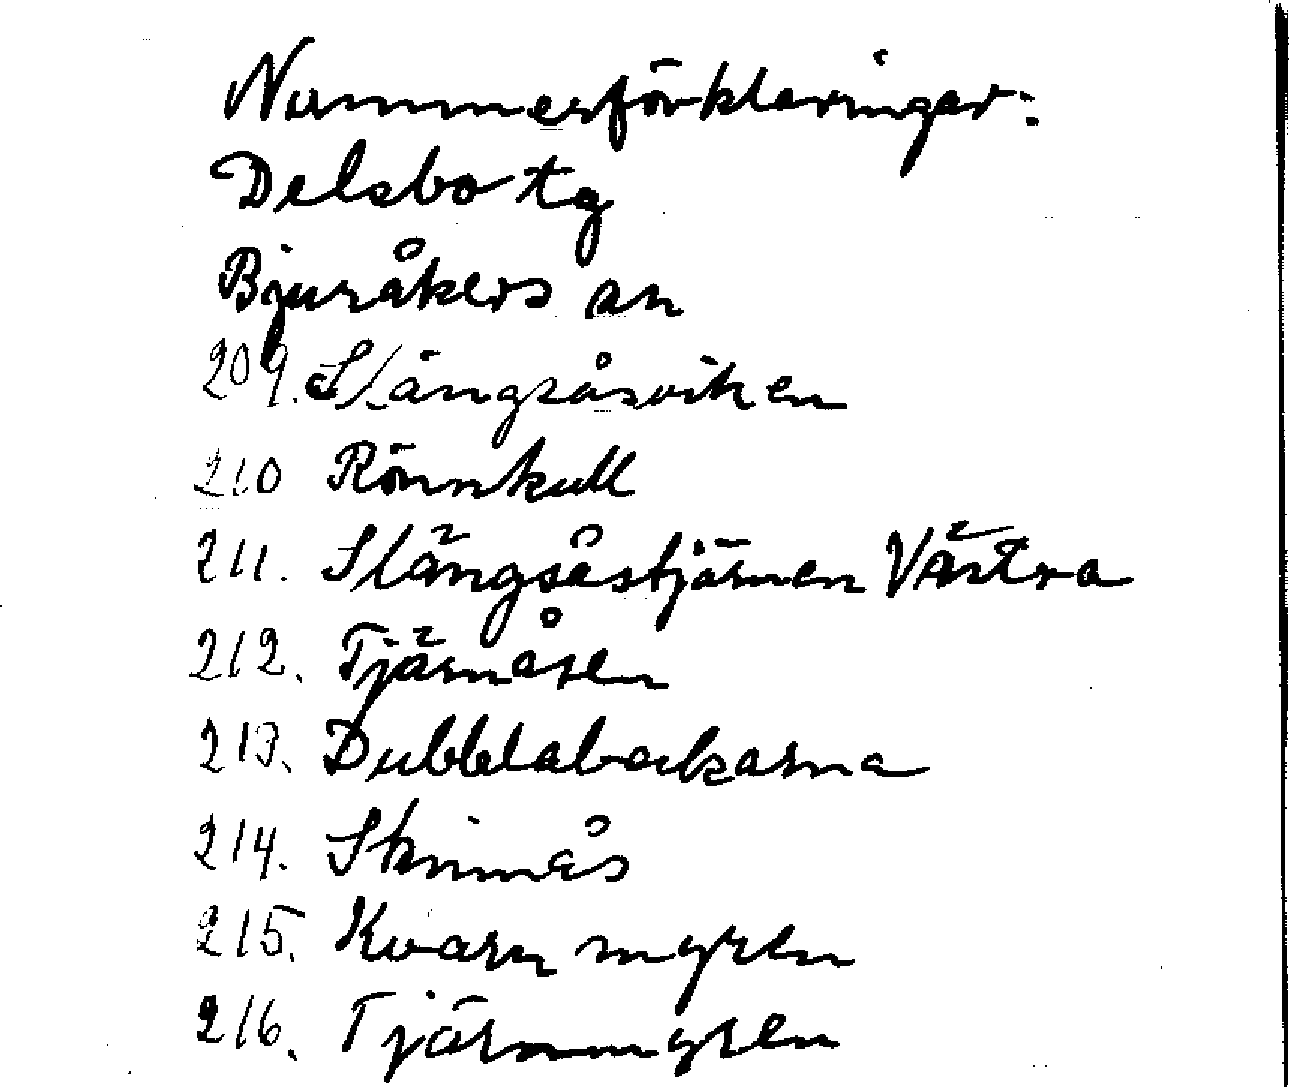 Nummerförklaringar:
Delsbo tg
Bjuråkers sn
209. Slängsåsviken
210 Rönnkull
211. Slängsåstjärnen Västra
212. Tjärnåsen
213. Dubblabackarna
214. Skinnås
215. Kvarn myren
216. Tjärnmyren